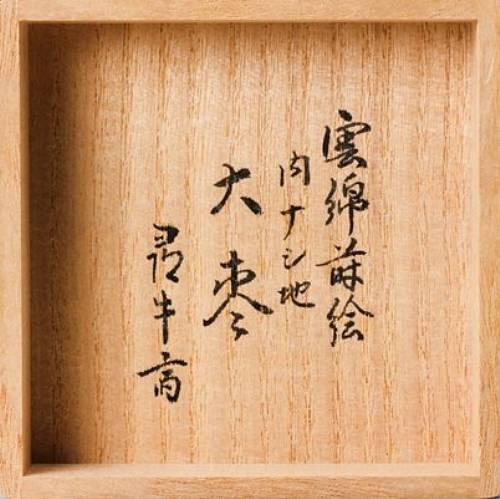 雲錦蒔絵
内ナシ地
大棗
尋牛斎